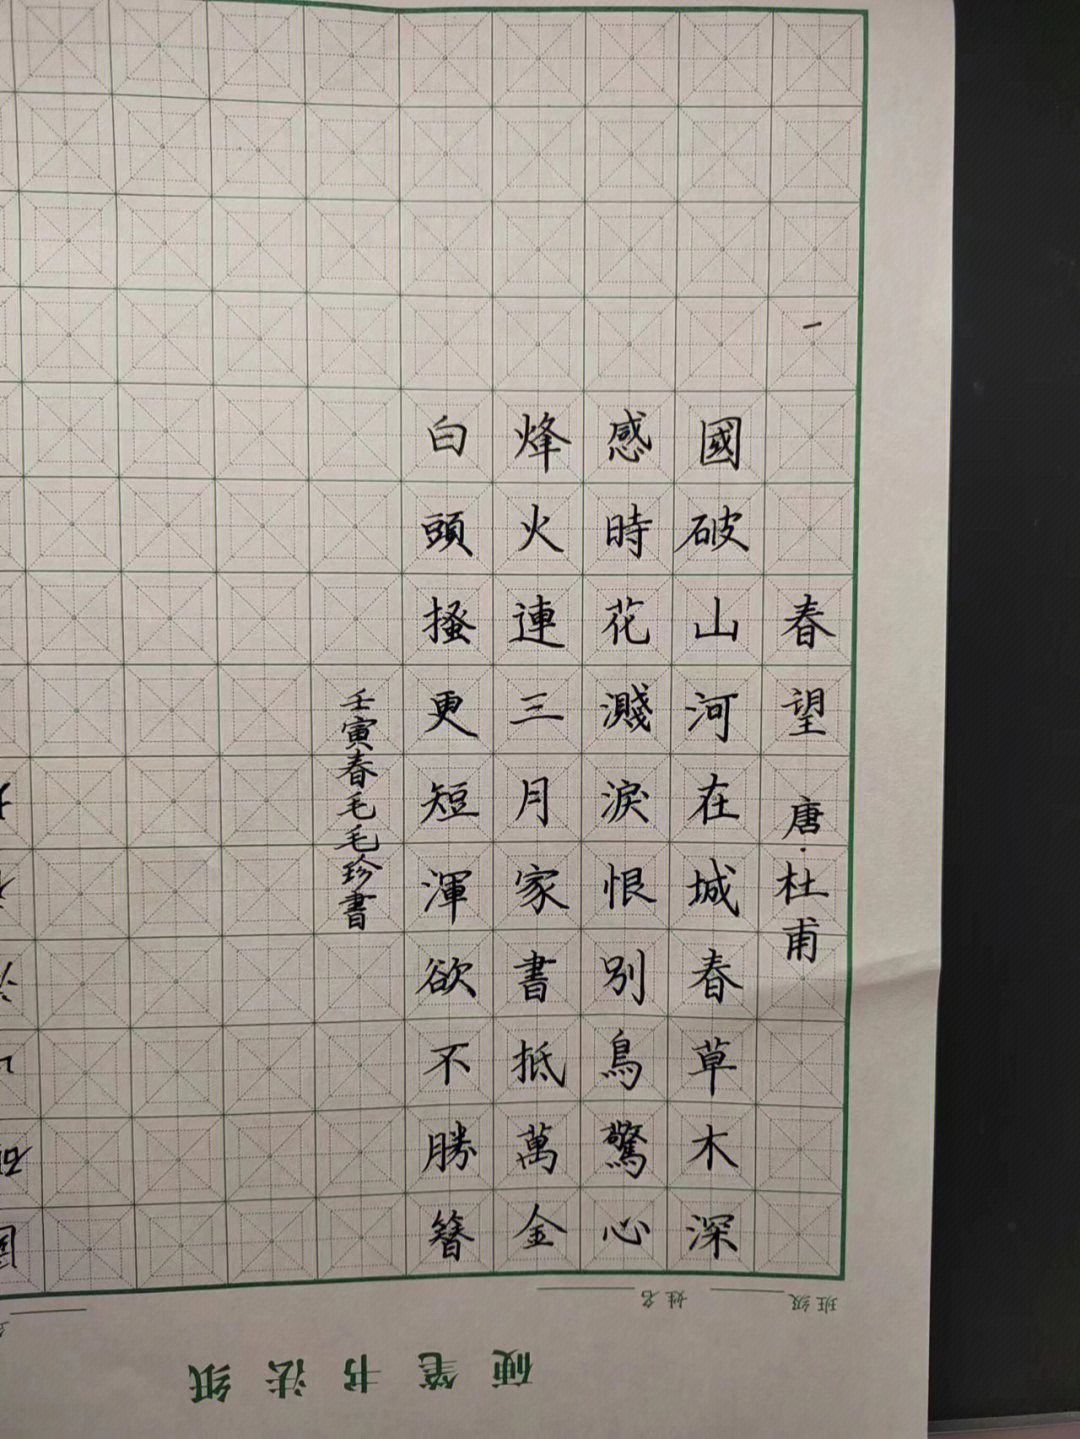 春望 唐·杜甫
國破山河在城春草木深
感時花濺淚恨別鳥驚心
烽火連三月家書抵萬金
白頭搔更短渾欲不勝簪
壬寅春毛毛珍書
班级 姓名
硬笔书法纸